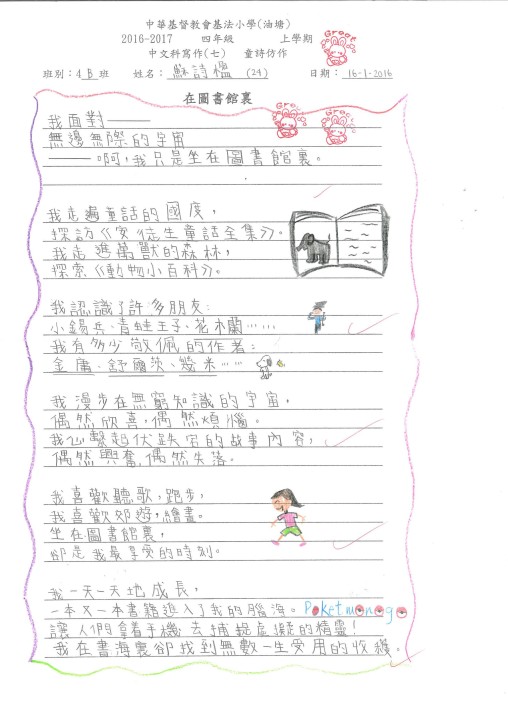 中華基督教會基法小學(油塘)
2016-2017 四年級 上學期
中文科寫作(七) 童詩仿作
班別:4B班 姓名:蘇詩檻(24) 日期:16-1-2016
Groot
在圖書館裏
Groot Groot
我面對——
無邊無際的宇宙
——啊,我只是坐在圖書館裏。
我走遍童話的國度,
探訪《安徒生童話全集》。
我走進萬獸的森林,
探索《動物小百科》。
我認識了許多朋友:
小錫兵、青蛙王子、花木蘭……
我有多少敬佩的作者:
金庸、舒爾茨、幾米……
我漫步在無窮知識的宇宙,
偶然欣喜,偶然煩惱。
我心繫起伏跌宕的故事內容,
偶然興奮,偶然失落。
我喜歡聽歌,跑步,
我喜歡郊遊,繪畫。
坐在圖書館裏,
卻是我最享受的時刻。
我一天一天地成長,
一本又一本書籍進入了我的腦海。Poketmon go
讓人們拿着手機去捕捉虛擬的精靈!
我在書海裏卻找到無數一生受用的收穫。